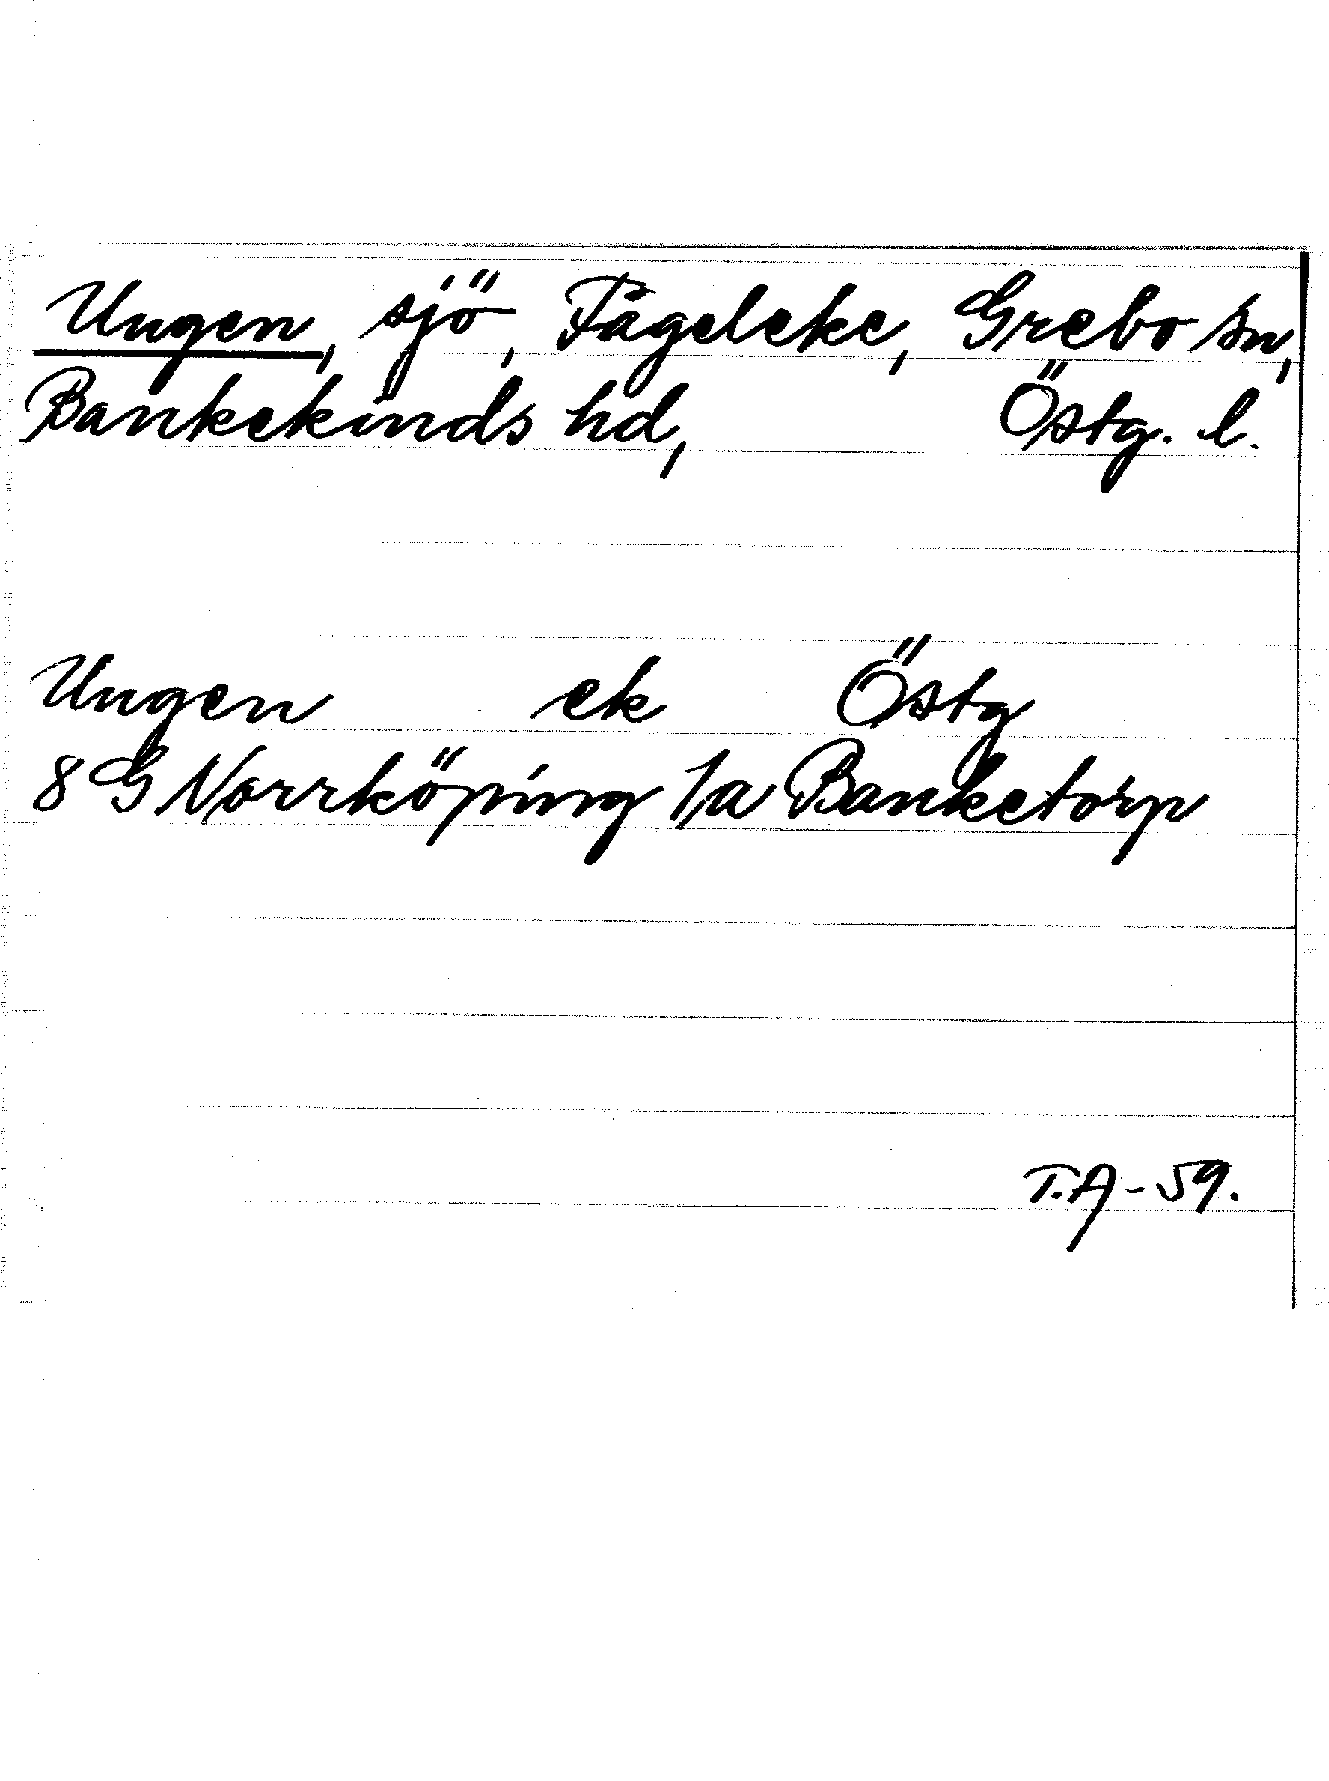 Ungen, sjö, Fågeleke, Grebo sn,
Bankekinds hd, Östg. l.
Ungen ek Östg
8 G Norrköping 1a Banketorp
T.A-59.